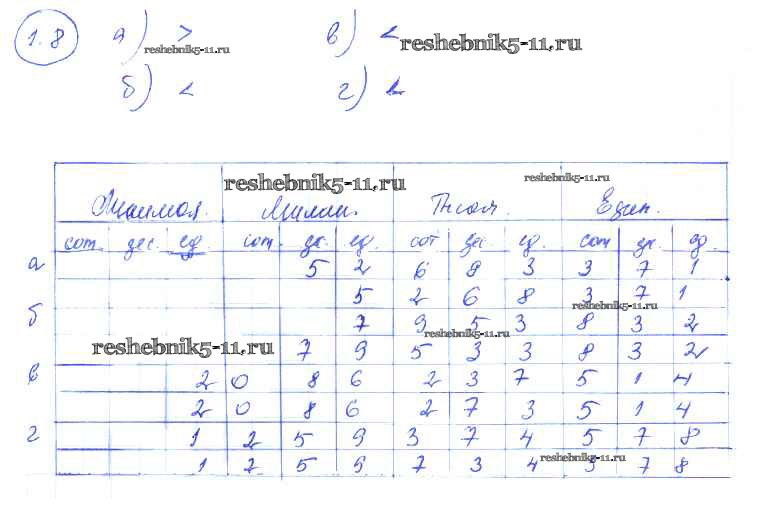 1.8 а) > в) <
reshebnik5-11.ru reshebnik5-11.ru
б) < г) <
reshebnik5-11.ru reshebnik5-11.ru
Милли. Тысяч. Един.
сот. дес. ед. сот. дес. ед. сот дес. ед. сот дес. ед.
а 5 2 6 8 3 3 7 1
5 2 6 8 3 7 1
reshebnik5-11.ru
б 7 9 5 3 8 3 2
reshebnik5-11.ru
7 9 5 3 3 8 3 2
reshebnik5-11.ru
в 2 0 8 6 2 3 7 5 1 4
2 0 8 6 2 7 3 5 1 4
г 1 2 5 9 3 7 4 5 7 8
1 2 5 9 7 3 4 5 7 8
reshebnik5-11.ru